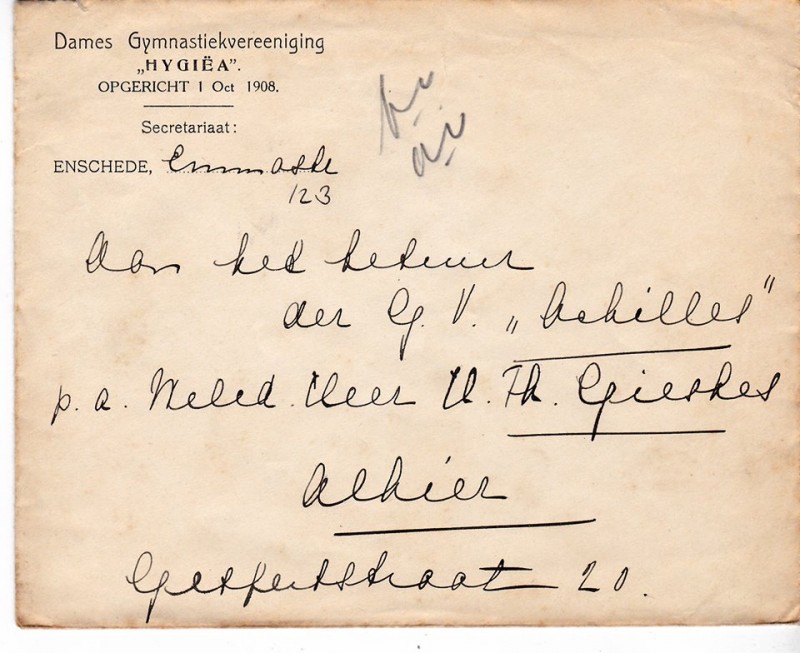 Dames Gymnastiekvereeniging
„HYGIËA".
OPGERICHT 1 Oct 1908.
Secretariaat:
ENSCHEDE, Emmastr
123
Aan het bestuur
der G. V. „Achilles"
p. a. Weled. Heer H. Th. Gieskes
Alhier
straat 20.